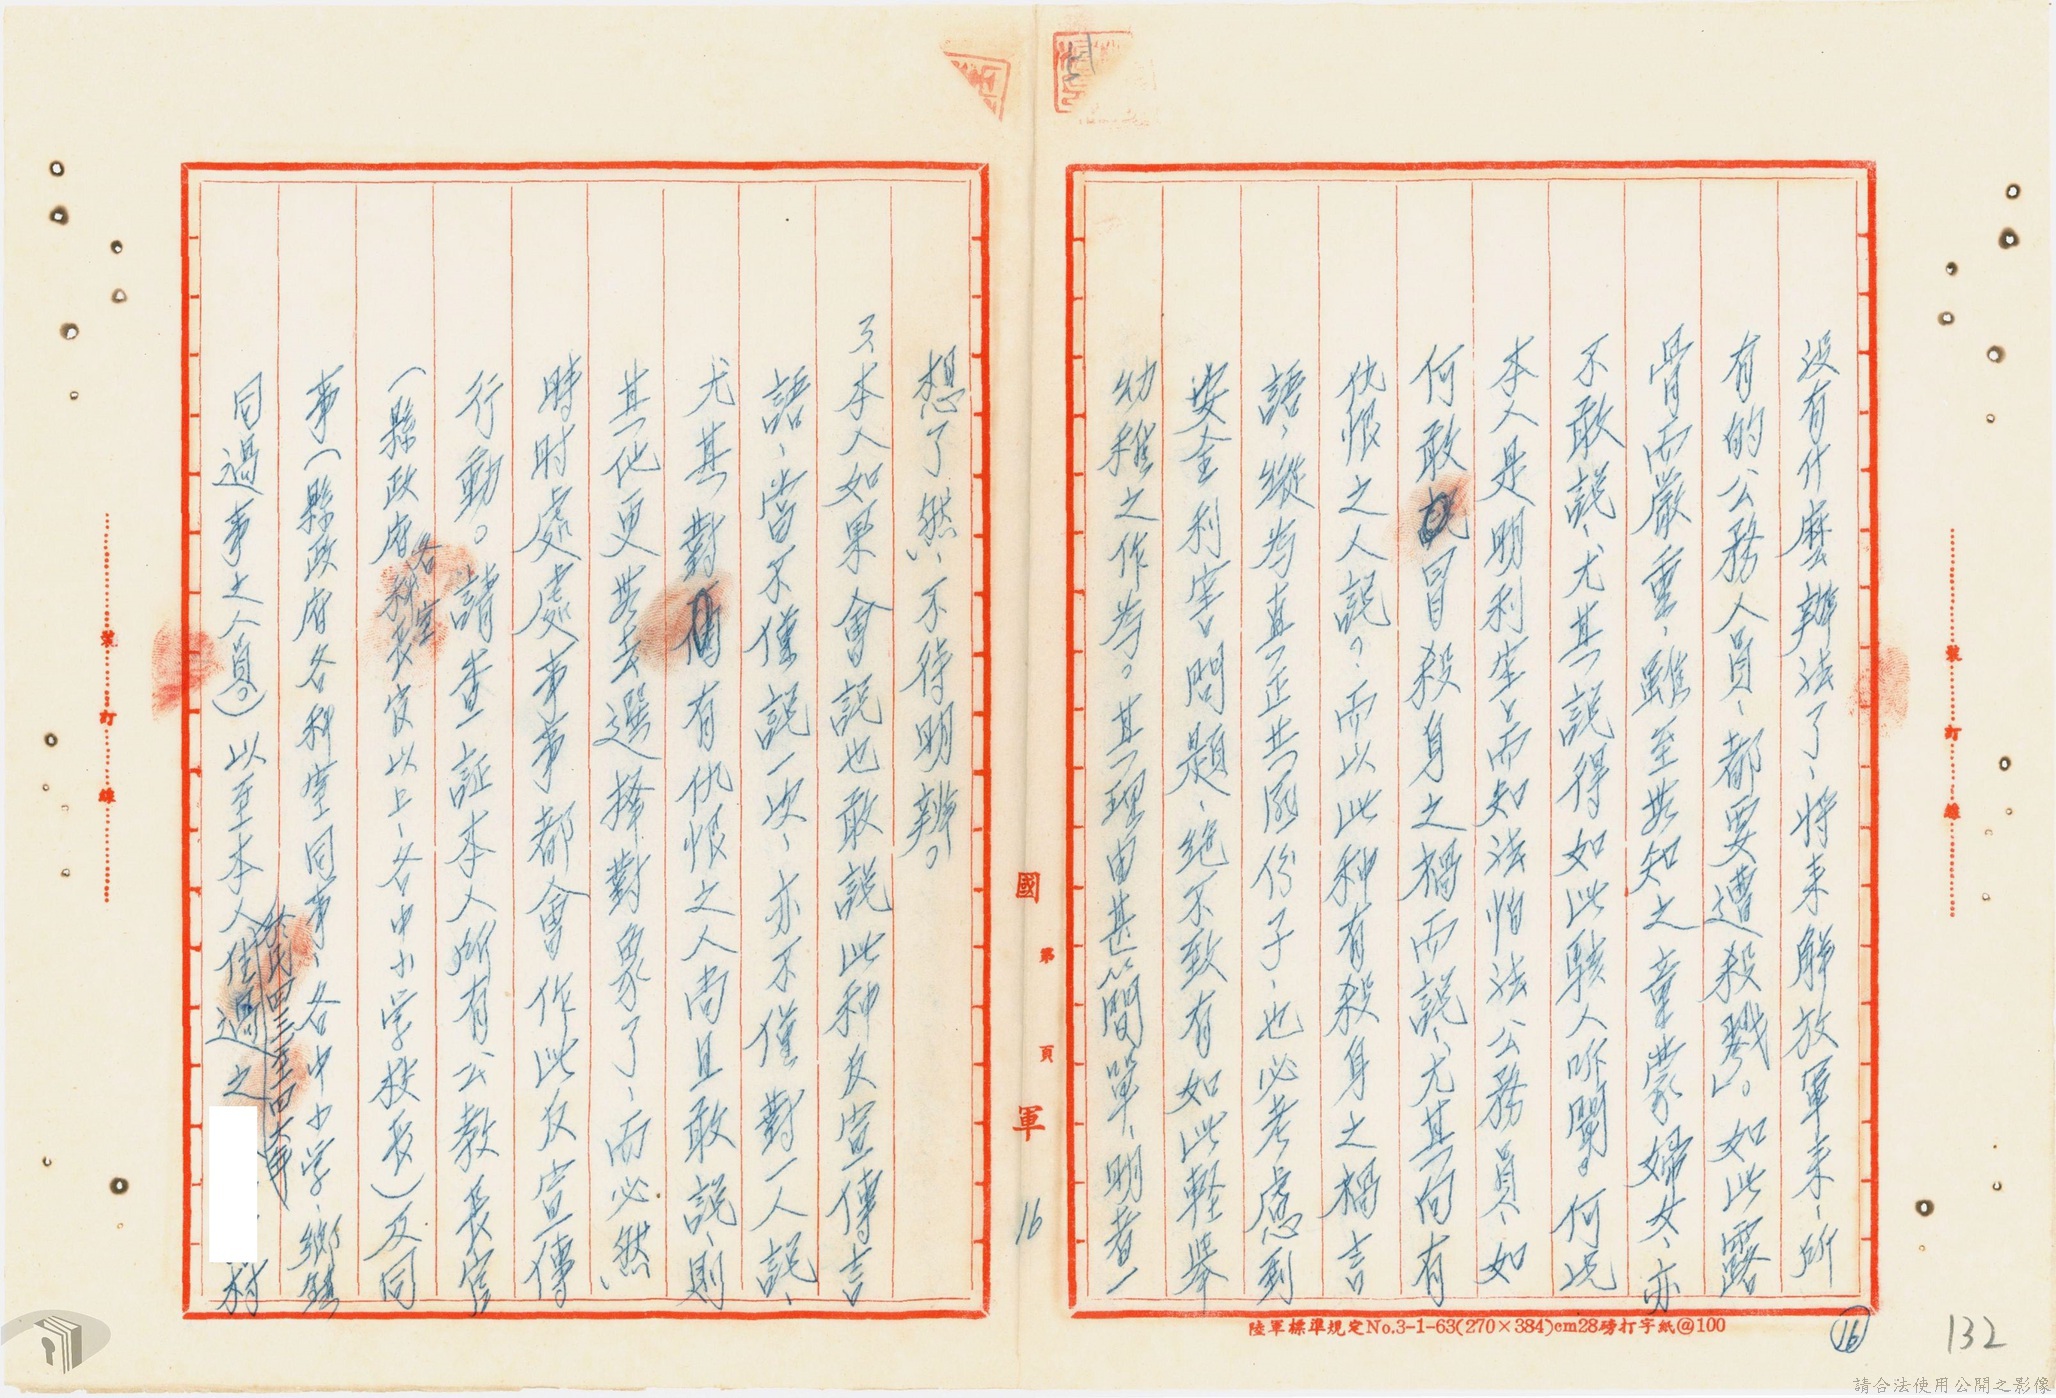 沒有什麼辦法了、將來解放軍來、所
有的公務人員、都要遭殺戮」。如此露
骨而嚴重、雖至無知之童蒙婦女、亦
不敢說、尤其說得如此駭人听聞。何況
本人是明利害而知法怕法公務員、如
何敢冒殺身之禍而說、尤其向有
仇恨之人說?而以此种有殺身之禍言
語、縱為真正共匪份子、也必考慮到
安全利害問題、絕不致有如此輕舉
幼稚之作為。其理由甚简單、明者一
想了然、不待明辨。
3、本人如果會說也敢說此种反宣傳言
語、當不僅說一次、亦不僅對一人說、
尤其對有仇恨之人尚且敢說、則
其他更無去選擇對象了、而必然
時時處處事事都會作此反宣傳
行動。請查証本人所有公教長官
(縣政府各科室長官以上、各中小学校長)及同
事(縣政府各科室同事、各中小学、鄉鎮
同過事之人員。)以至本人住過之 村
國 軍
第 頁
16
裝 訂 線
裝 訂 線
陸軍標準規定No.3-1-63(270×384)cm28磅打字紙@100
16
132
請合法使用公開之影像